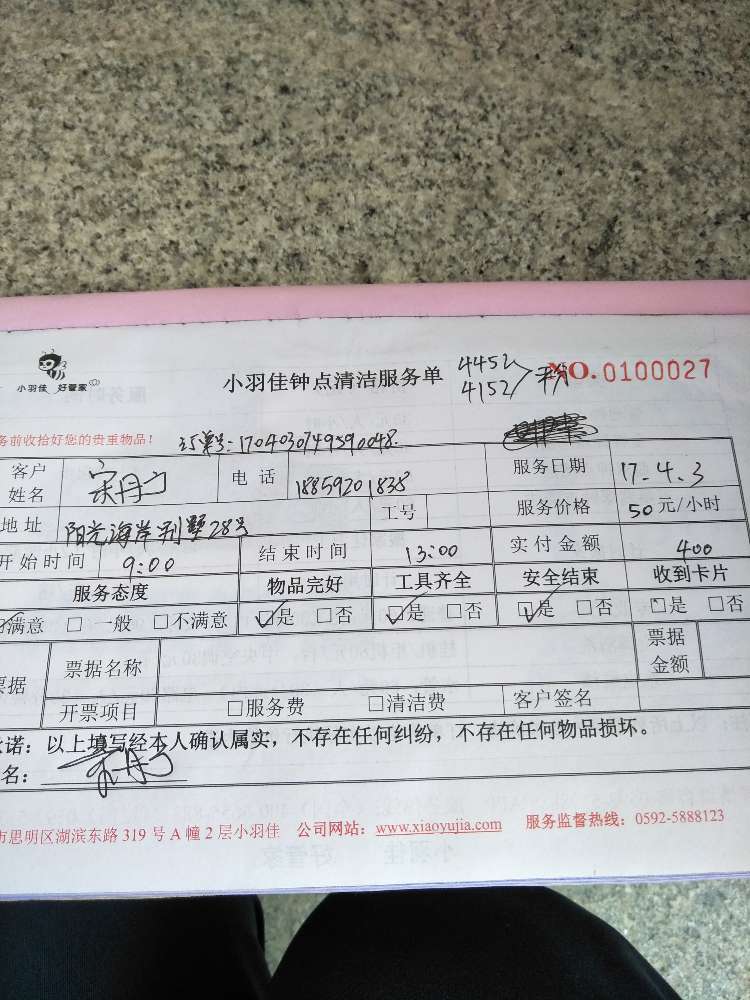 小羽佳 好管家
小羽佳钟点清洁服务单 4452 4152 NO.0100027
务前收拾好您的贵重物品! 订单号:1704030749590048.
客户姓名 电话 18859201838 服务日期 17.4.3
地址 阳光海岸别墅28号 工号 服务价格 50元/小时
开始时间 9:00 结束时间 13:00 实付金额 400
服务态度 物品完好 工具齐全 安全结束 收到卡片
满意 □一般 □不满意 ☑是 □否 ☑是 □否 ☑是 □否 □是 □否
票据 票据名称 票据金额
开票项目 □服务费 □清洁费 客户签名
诺:以上填写经本人确认属实,不存在任何纠纷,不存在任何物品损坏。
名:
市思明区湖滨东路 319 号 A 幢 2 层小羽佳 公司网站:www.xiaoyujia.com 服务监督热线:0592-5888123